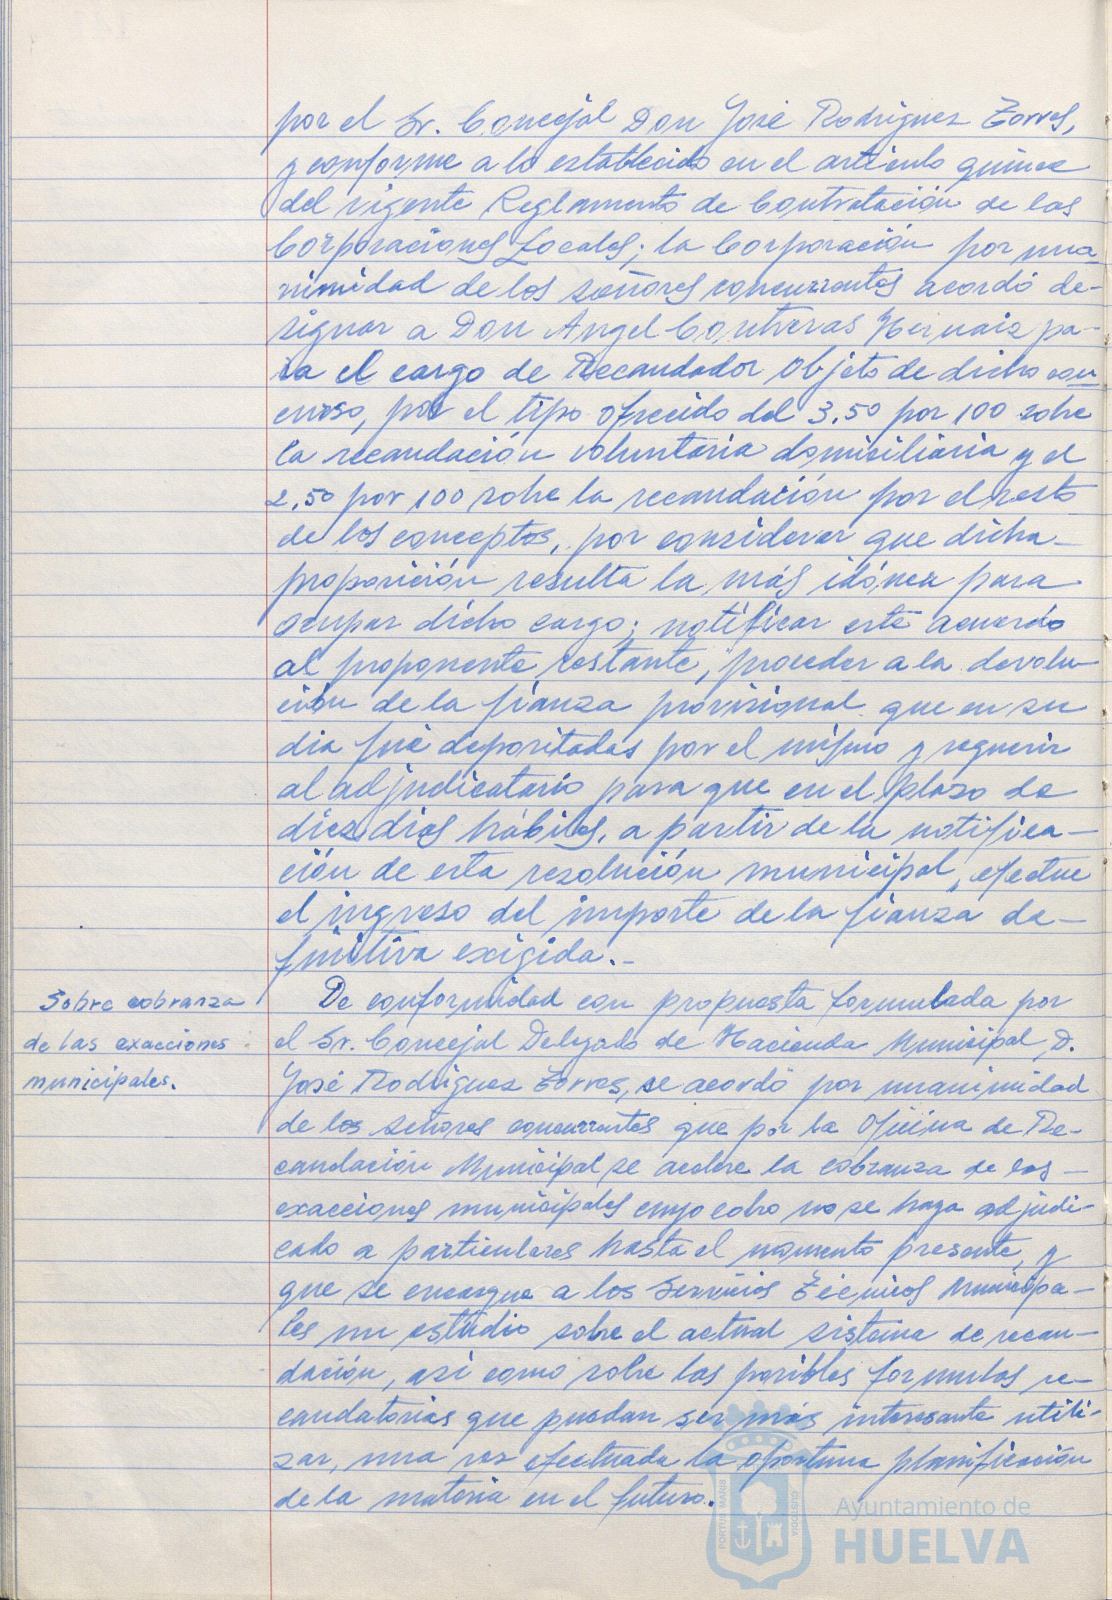 por el Sr. Concejal Don José Rodríguez Torres,
y conforme a lo establecido en el artículo quince
del vigente Reglamento de Contratación de las
Corporaciones Locales; la Corporación por una
nimidad de los señores concurrentes acordó de-
signar a Don Angel Contreras Hernaiz pa-
ra el cargo de Recaudador objeto de dicho con
curso, por el tipo ofrecido del 3,50 por 100 sobre
la recaudación voluntaria domiciliaria y el
2,50 por 100 sobre la recaudación por el resto
de los conceptos, por considerar que dicha
proposición resulta la más idónea para
ocupar dicho cargo; notificar este acuerdo
al proponente restante, proceder a la devolu
ción de la fianza provisional que en su
dia fué depositadas por el mismo y requerir
al adjudicatario para que en el plazo de
diez dias hábiles, a partir de la notifica-
ción de esta resolución municipal, efectue
el ingreso del importe de la fianza de-
finitiva exigida.-
Sobre cobranza
de las exacciones
municipales.
De conformidad con propuesta formulada por
el Sr. Concejal Delegado de Hacienda Municipal D.
José Rodríguez Torres, se acordó por unanimidad
de los señores concurrentes que por la Oficina de Re-
caudación Municipal se acelere la cobranza de las-
exacciones municipales cuyo cobro no se haya adjudi-
cado a particulares hasta el momento presente, y
que se encargue a los Servicios Técnicos Municipa-
les un estudio sobre el actual sistema de recau-
dación, asi como sobre las posibles formulas re-
caudatorias que puedan ser más interesante utili-
zar, una vez efectuada la oportuna planificación
de la materia en el futuro.
PORTUS MARIS
CUSTODIA
Ayuntamiento de
HUELVA